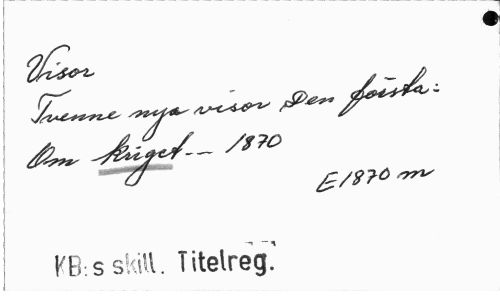 Visor
Tvenne nya visor Den första:
Om kriget -- 1870
E1870 m
KB:s skill. Titelreg.